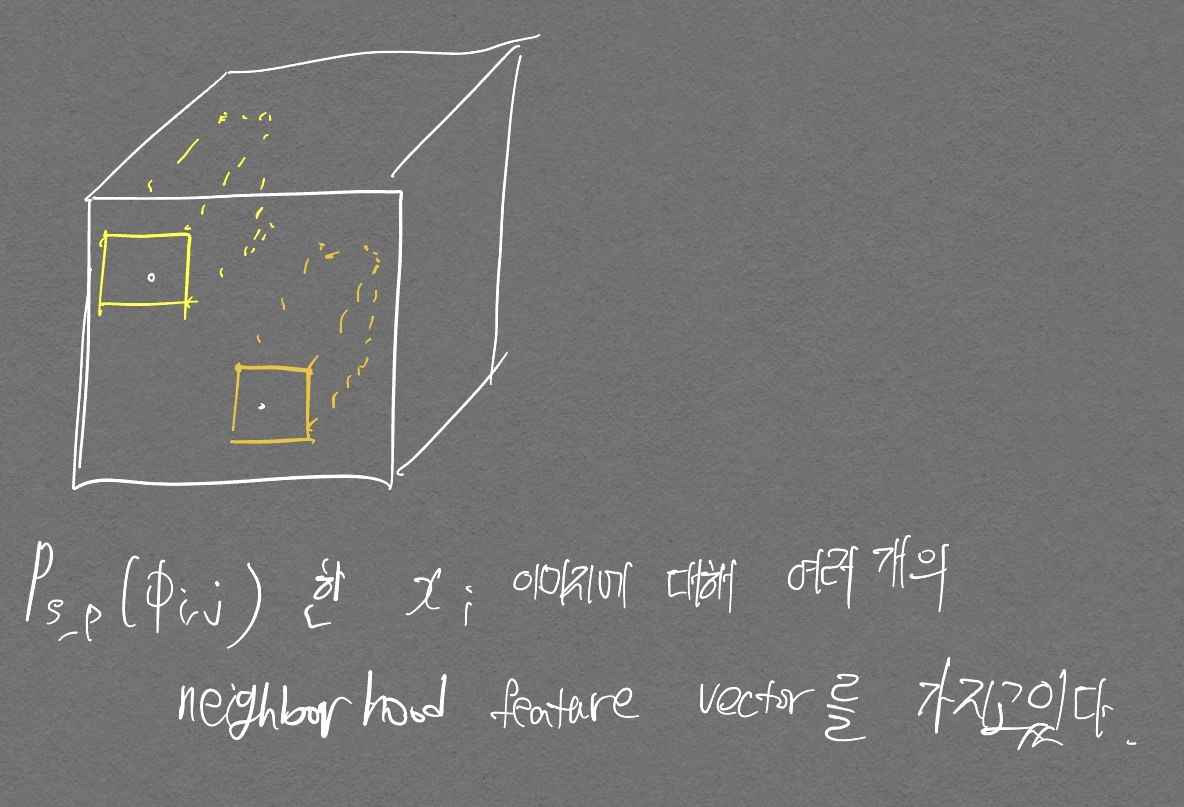 P_{s_p}(ϕ_{i,j}) 한 x_i 이미지에 대해 여러 개의
neighborhood feature vector를 가지고있다.